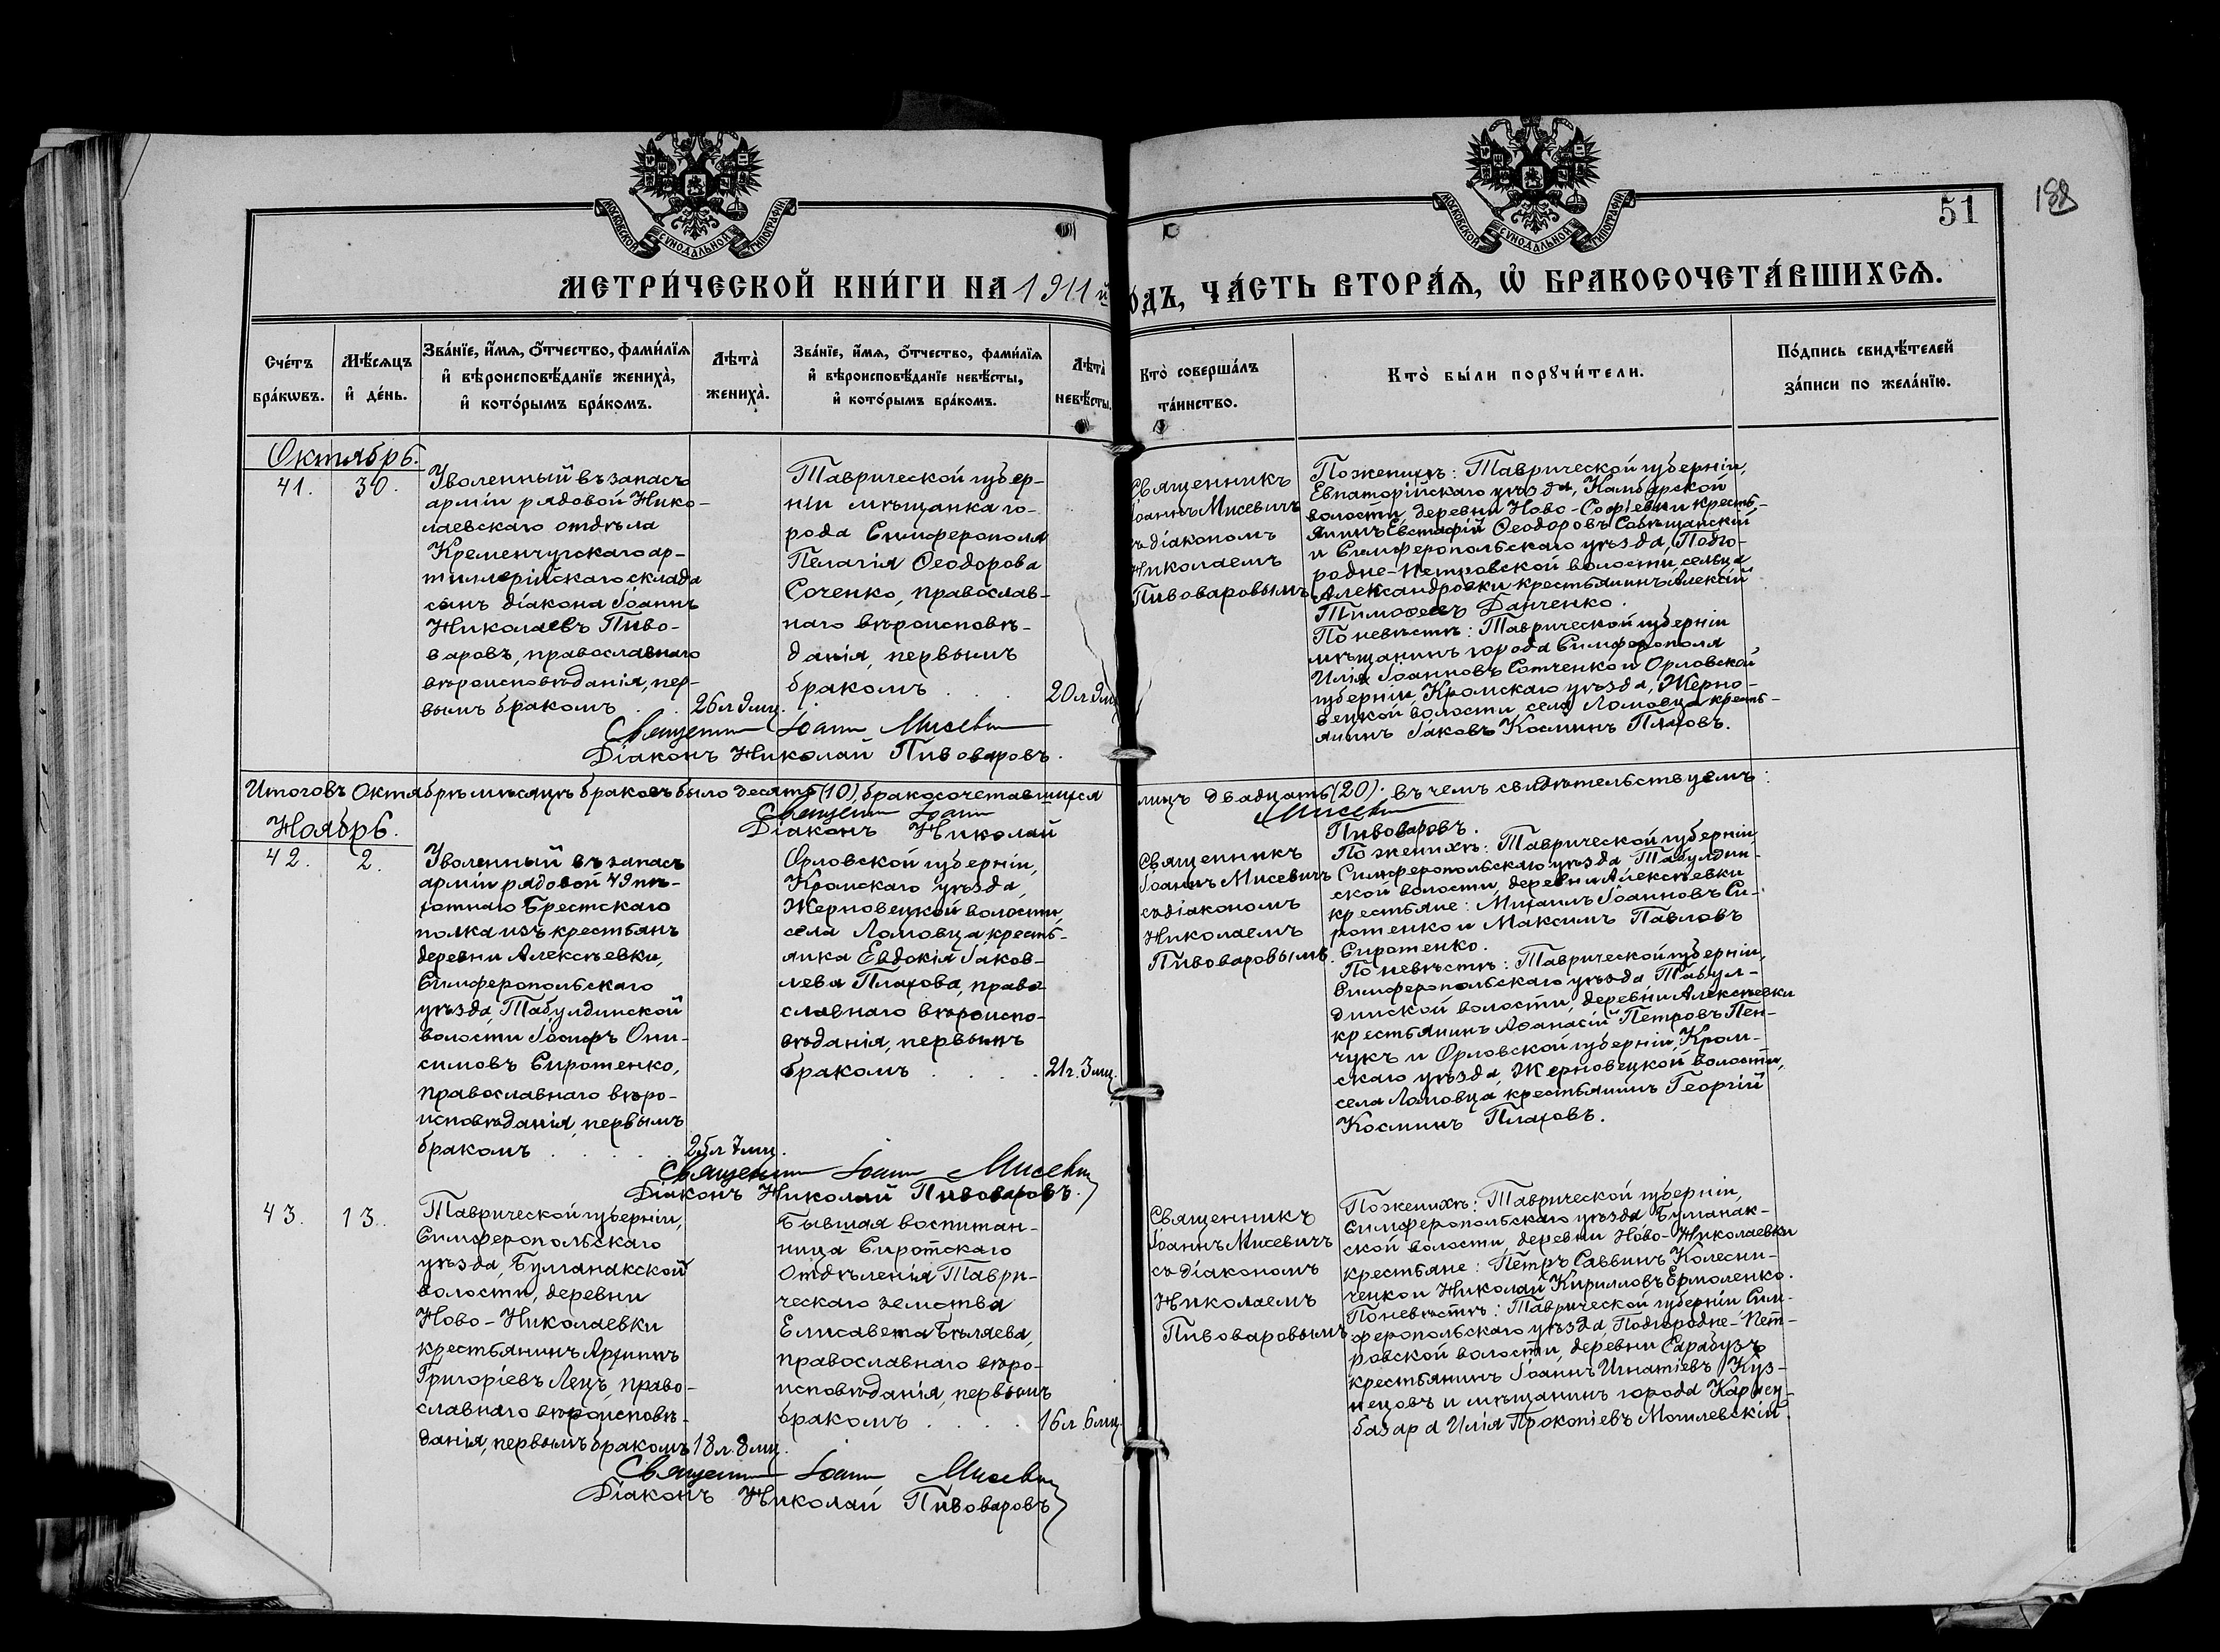 МОСКОВСКОЙ СѴНОДАЛЬНОЙ ТИПОГРАФІИ
МОСКОВСКОЙ СѴНОДАЛЬНОЙ ТИПОГРАФІИ
51
МЕТРИ́ЧЕСКОЙ КНИ́ГИ НА 1911 й
О́ДЪ, ЧА́СТЬ ВТОРА́Ѧ, Ѡ҆ БРАКОСОЧЕТА́ВШИХСѦ.
Сче́тъ
бра́кѡвъ.
Мѣ́сѧцъ
и҆ де́нь.
Зва́нїе, и҆́мѧ, ѻ҆́тчество, фами́лїѧ
и҆ вѣроисповѣ́данїе жениха̀,
и҆ кото́рымъ бра́комъ.
Лѣта̀
жениха̀.
Зва́нїе, и҆́мѧ, ѻ҆́тчество, фами́лїѧ
и҆ вѣроисповѣ́данїе невѣ́сты,
и҆ кото́рымъ бра́комъ.
Лѣта̀
невѣ́сты.
Кто̀ соверша́лъ
та́инство.
Кто̀ бы́ли порꙋчи́тели.
По́дпись свидѣ́телей
за́писи по жела́нїю.
Октябрь.
41.
30.
Уволенный въ запасъ
арміи рядовой Нико-
лаевскаго отдѣла
Кременчугскаго ар-
тиллерійскаго склада
сынъ діакона Іоаннъ
Николаевъ Пиво-
варовъ, православнаго
вѣроисповѣданія, пер-
вымъ бракомъ . .
26 л 9 мц.
Таврической губер-
ніи мѣщанка го-
рода Симферополя
Пелагія Ѳеодорова
Соченко, православ-
наго вѣроисповѣ-
данія, первымъ
бракомъ . . .
20 л 9 мц
Священникъ
Іоаннъ Мисевичъ
съ діакономъ
Николаемъ
Пивоваровымъ
По женихѣ: Таврической губерніи,
Евпаторійскаго уѣзда, Камбарской
волости, деревни Ново-Софіевки кресть-
янинъ Евстафій Ѳеодоровъ
и Симферопольскаго уѣзда, Подго-
родне-Петровской волости, сельца
Александровки крестьянинъ Алексій
Тимоѳеевъ Данченко.
По невѣстѣ: Таврической губерніи
мѣщанинъ города Симферополя
Илія Іоанновъ Сотченко и Орловской
губерніи, Кромскаго уѣзда, Жерно-
вецкой волости, села Ломовца кресть-
янинъ Іаковъ Косминъ Плаховъ.
Священникъ Іоаннъ Мисевич
Діаконъ Николай Пивоваровъ.
Итого въ Октябрѣ мѣсяцѣ браковъ было десять (10), бракосочетавшихся
лицъ двадцать (20). въ чемъ свидѣтельствуемъ:
Священникъ Іоаннъ
Мисевич
Діаконъ Николай
Пивоваровъ.
Ноябрь.
42.
2.
Уволенный въ запасъ
арміи рядовой 49 пѣ-
хотнаго Брестскаго
полка изъ крестьянъ
деревни Алексѣевки,
Симферопольскаго
уѣзда, Табулдинской
волости Іосифъ Они-
симовъ Сиротенко,
православнаго вѣро-
исповѣданія, первымъ
бракомъ . . . . .
25 л 7 мц.
Орловской губерніи,
Кромскаго уѣзда,
Жерновецкой волости,
села Ломовца кресть-
янка Евдокія Іаков-
лева Плахова, право-
славнаго вѣроиспо-
вѣданія, первымъ
бракомъ . . . .
21 г. 3 мц.
Священникъ
Іоаннъ Мисевичъ
съ діакономъ
Николаемъ
Пивоваровымъ.
По женихѣ: Таврической губерніи,
Симферопольскаго уѣзда Табулдин-
ской волости, деревни Алексѣевки
крестьяне: Михаилъ Іоанновъ Си-
ротенко и Максимъ Павловъ
Сиротенко.
По невѣстѣ: Таврической губерніи,
Симферопольскаго уѣзда, Табул-
динской волости, деревни Алексѣевки
крестьянинъ Аѳанасій Петровъ Пен-
чукъ и Орловской губерніи, Кром-
скаго уѣзда, Жерновецкой волости,
села Ломовца крестьянинъ Георгій
Косминъ Плаховъ.
Священникъ Іоаннъ Мисевич
Діаконъ Николай Пивоваровъ.
43.
13.
Таврической губерніи,
Симферопольскаго
уѣзда, Булганакской
волости, деревни
Ново-Николаевки
крестьянинъ Архиппъ
Григоріевъ Лецъ, право-
славнаго вѣроисповѣ-
данія, первымъ бракомъ
18 л. 8 мц.
Бывшая воспитан-
ница Сиротскаго
Отдѣленія Таври-
ческаго земства
Елисавета Бѣляева,
православнаго вѣро-
исповѣданія, первымъ
бракомъ . . . .
16 л. 6 мц.
Священникъ
Іоаннъ Мисевичъ
съ діакономъ
Николаемъ
Пивоваровымъ
По женихѣ: Таврической губерніи,
Симферопольскаго уѣзда Булганак-
ской волости, деревни Ново-Николаевки
крестьяне: Петръ Саввинъ Колесни-
ченко и Николай Кирилловъ Ермоленко.
По невѣстѣ: Таврической губерніи Сим-
феропольскаго уѣзда, Подгородне-Пет-
ровской волости, деревни Сарабузъ
крестьянинъ Іоаннъ Игнатіевъ Куз-
нецовъ и мѣщанинъ города Карасу-
базара Илія Прокопіевъ Могилевскій.
Священникъ Іоаннъ Мисевич
Діаконъ Николай Пивоваровъ